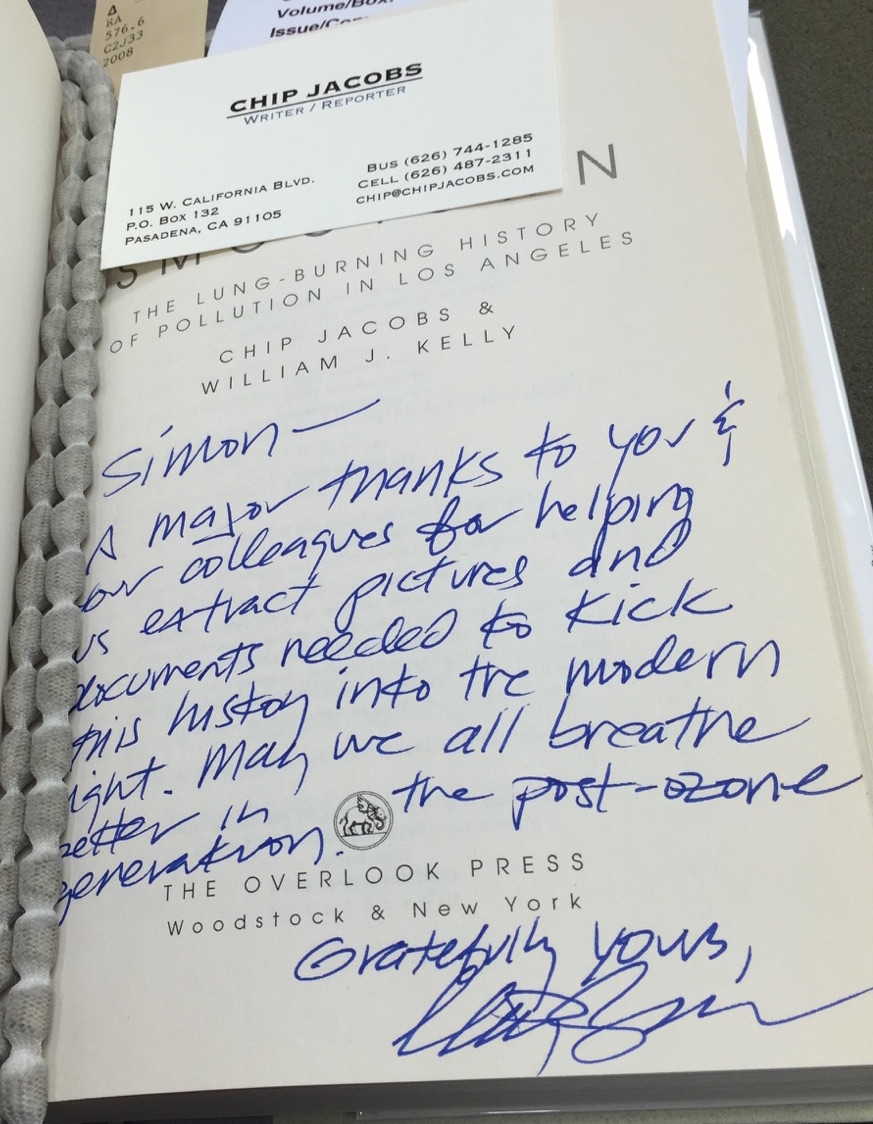 Δ
RA
576.6
C2J33
2008
Volume/Box:
CHIP JACOBS
WRITER / REPORTER
115 W. CALIFORNIA BLVD.
P.O. BOX 132
PASADENA, CA 91105
BUS (626) 744-1285
CELL (626) 487-2311
CHIP@CHIPJACOBS.COM
N
THE LUNG-BURNING HISTORY
OF POLLUTION IN LOS ANGELES
CHIP JACOBS &
WILLIAM J. KELLY
Simon—
A major thanks to you &
our colleagues for helping
us extract pictures and
documents needed to kick
this history into the modern
light. May we all breathe
better in the post-ozone
generation.
THE OVERLOOK PRESS
Woodstock & New York
Gratefully yours,